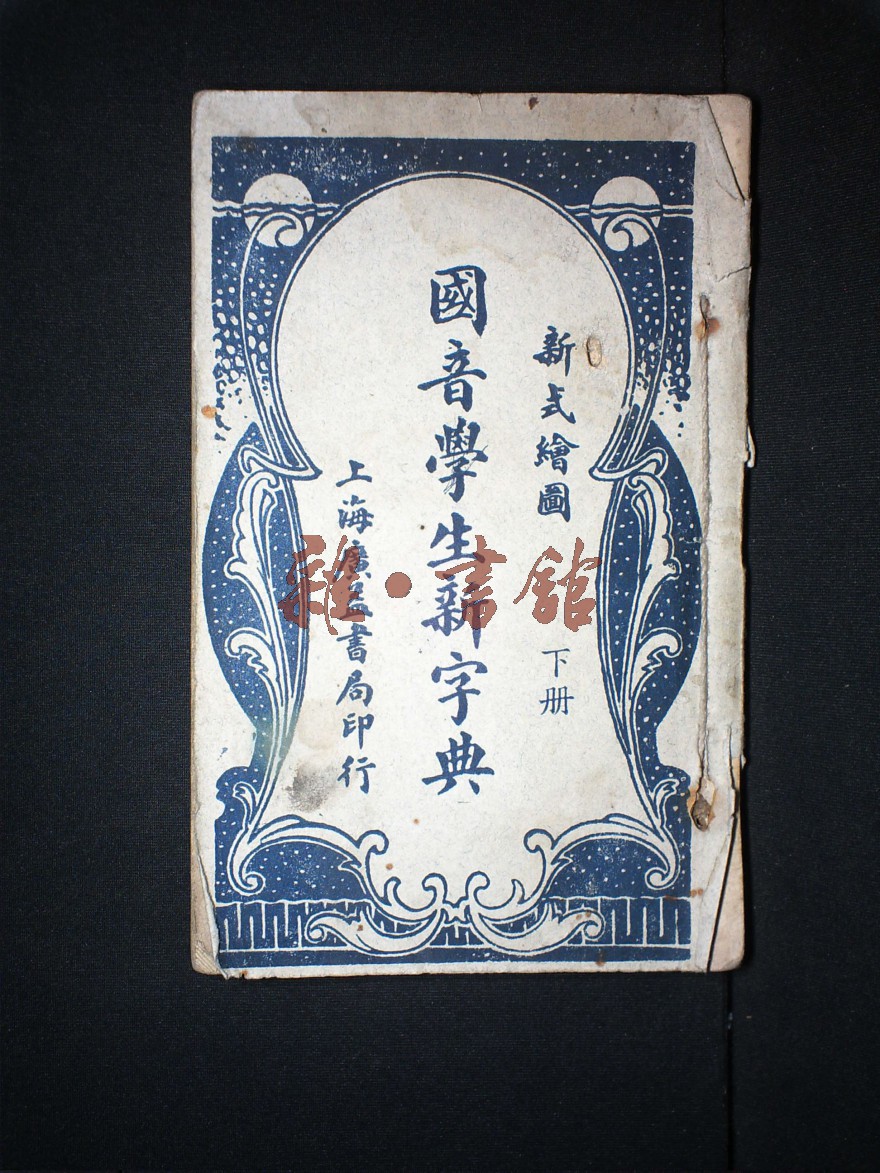 新式繪圖
下册
國音學生新字典
上海廣益書局印行
雜·書館